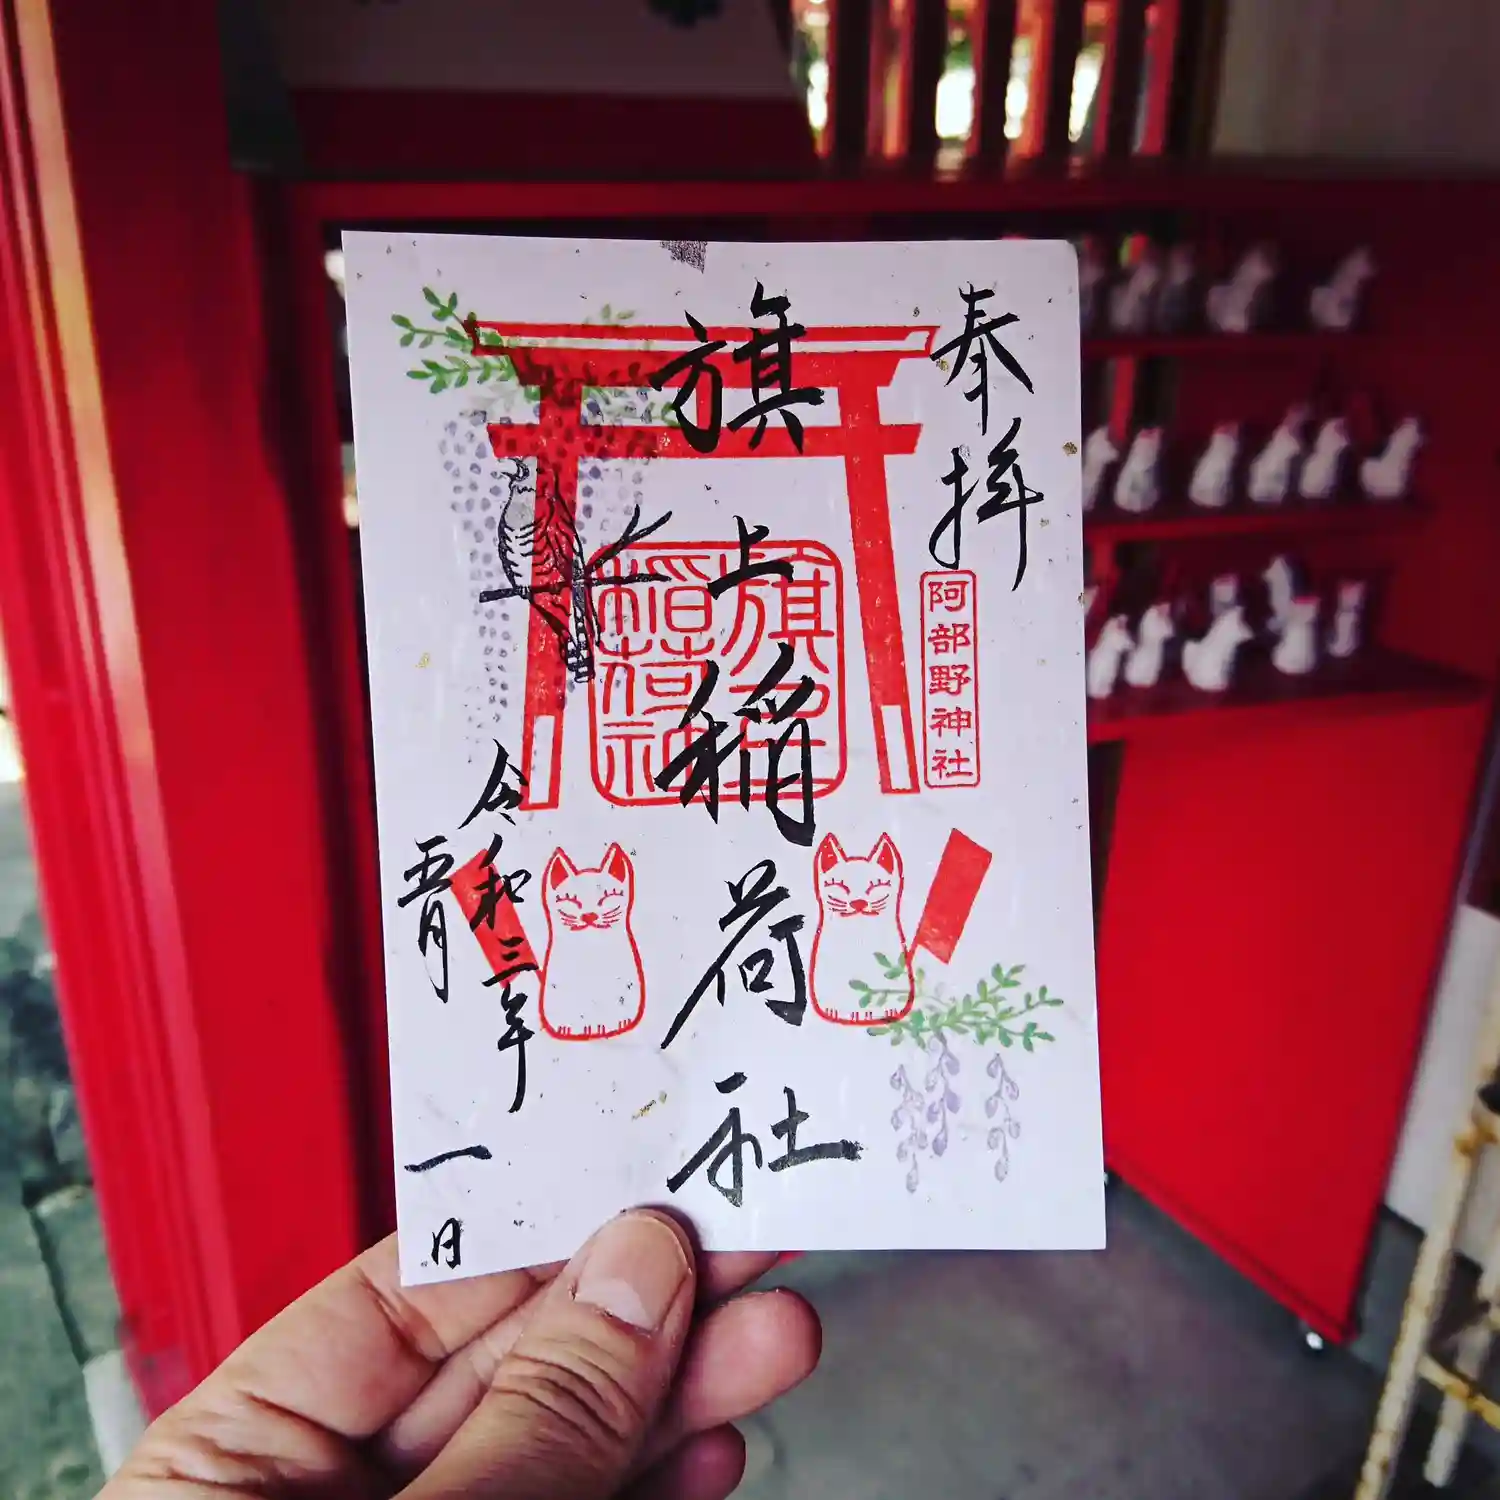 奉拝
阿部野神社
旗上稲荷社
旗上稲荷神社
令和三年
五月
一日